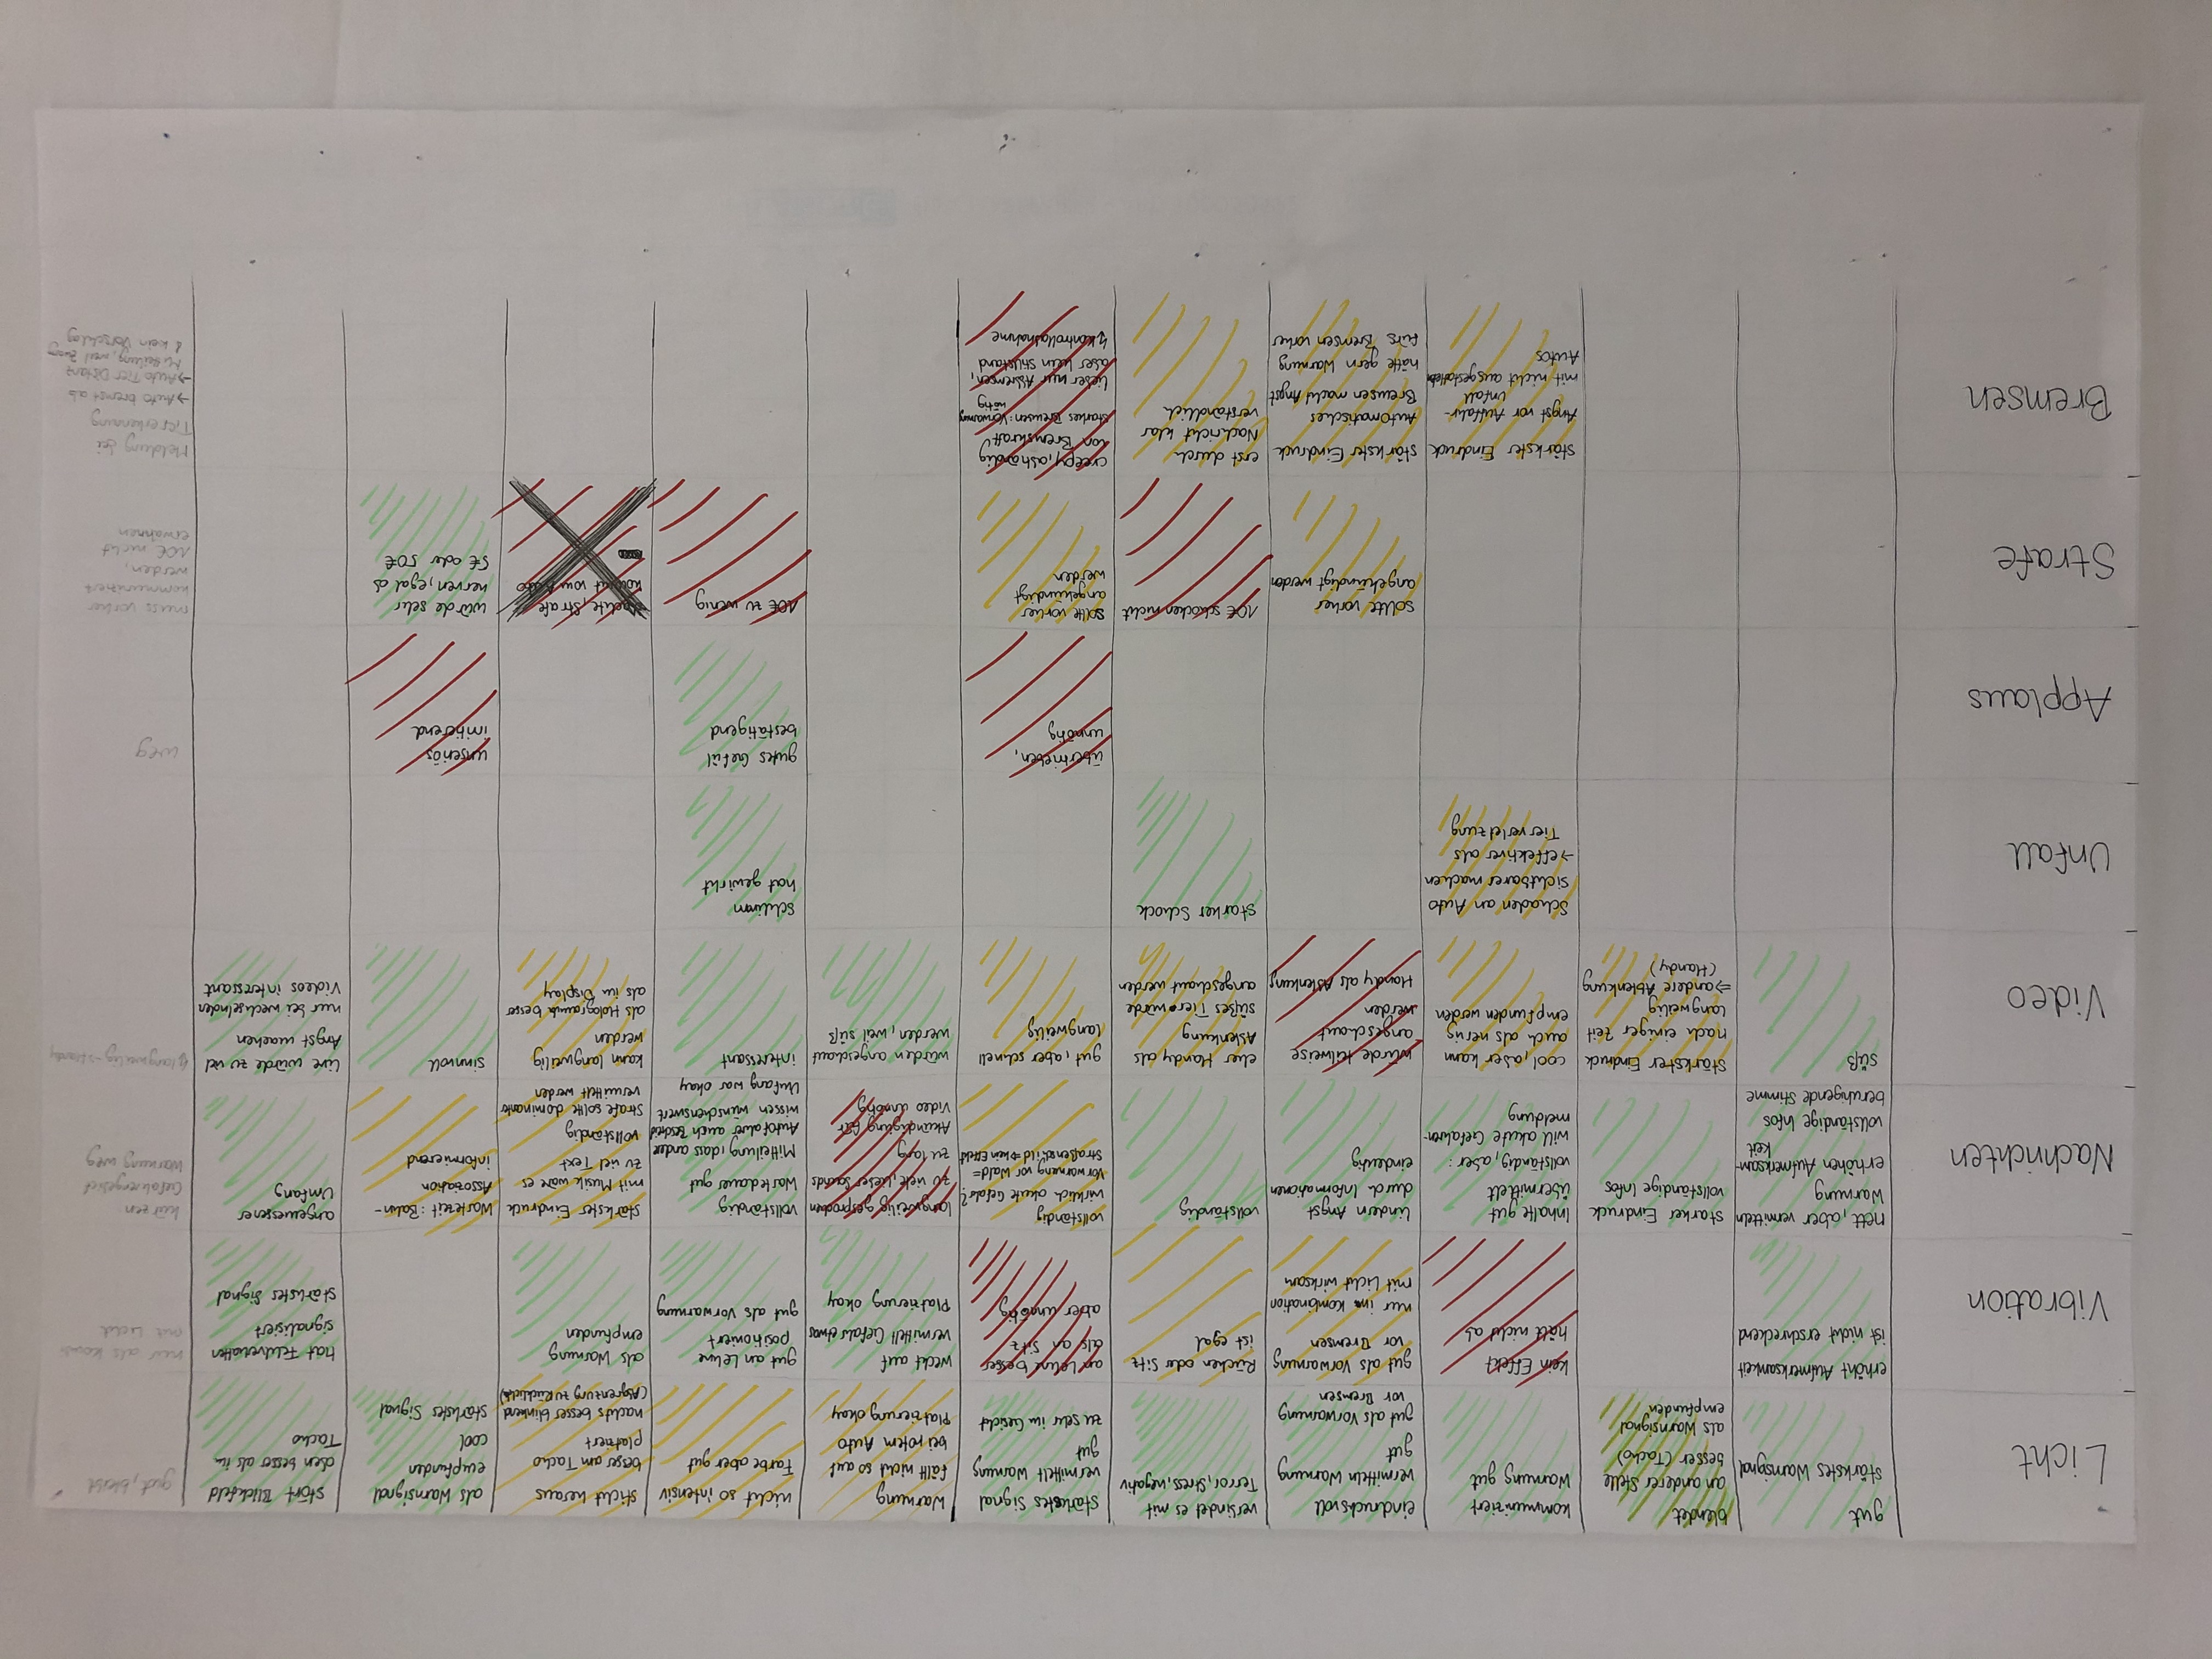 Licht
gut
stärkstes Warnsignal
blendet
an anderer Stelle
besser (Tacho)
als Warnsignal
empfunden
kommuniziert
Warnung gut
eindrucksvoll
vermitteln Warnung
gut
gut als Vorwarnung
vor Bremsen
verbindet es mit
Terror, Stress, negativ
stärkstes Signal
vermittelt Warnung
gut
zu sehr im Gesicht
Warnung
fällt nicht so auf
bei rotem Auto
Platzierung okay
nicht so intensiv
Farbe aber gut
sticht heraus
besser am Tacho
platziert
nachts besser blinkend
(Abgrenzung zu Rücklicht)
als Warnsignal
empfunden
cool
stärkstes Signal
stört Blickfeld
oben besser als im
Tacho
gut, bleibt
Vibration
erhöht Aufmerksamkeit
ist nicht erschreckend
kein Effekt
hält nicht ab
gut als Vorwarnung
vor Bremsen
nur in Kombination
mit Licht wirksam
Rücken oder Sitz
ist egal
an Lehne besser
als an Sitz
aber unnötig
weckt auf
vermittelt Gefahr etwas
Platzierung okay
gut an Lehne
positioniert
gut als Vorwarnung
als Warnung
empfunden
hat Fehlverhalten
signalisiert
stärkstes Signal
nur als Kombi
mit Licht
Nachrichten
nett, aber vermitteln
Warnung
erhöhen Aufmerksam-
keit
vollständige Infos
beruhigende Stimme
starker Eindruck
vollständige Infos
Inhalte gut
übermittelt
vollständig, aber:
will akute Gefahren-
meldung
lindern Angst
durch Informationen
eindeutig
vollständig
vollständig
wirklich akute Gefahr?
Vorwarnung vor Wald=
Straßenschild ⇒ kein Effekt
langweilig gesprochen
zu viele, lieber Sounds
zu lang
Akündigung für
Video unnötig
vollständig
Wartedauer gut
Mitteilung, dass andere
Autofahrer auch Bescheid
wissen wünschenswert
Umfang war okay
stärkster Eindruck
mit Musik wäre es
zu viel Text
vollständig
Strafe sollte dominanter
vermittelt werden
Wartezeit: Bahn-
Assoziation
informierend
angemessener
Umfang
kürzen
Gefahrengebiet
Warnung weg
Video
süß
stärkster Eindruck
nach einiger Zeit
langweilig
⇒ andere Ablenkung
(Handy)
cool, aber kann
auch als nervig
empfunden werden
würde teilweise
angeschaut
werden
Handy als Ablenkung
eher Handy als
Ablenkung
süßes Tier würde
angeschaut werden
gut, aber schnell
langweilig
würden angeschaut
werden, weil süß
interessant
kann langweilig
werden
als Hologramm besser
als im Display
sinnvoll
Live würde zu viel
Angst machen
nur bei wechselnden
Videos interessant
langweilig → Handy
Unfall
Schaden an Auto
sichtbarer machen
→ effektiver als
Tierverletzung
starker Schock
schlimm
hat gewirkt
Applaus
übertrieben,
unnötig
gutes Gefül
bestätigend
unseriös
irritierend
weg
Strafe
sollte vorher
angekündigt werden
10€ schocken nicht
sollte vorher
angekündigt
werden
10€ zu wenig
dachte, Strafe
kommt vom Auto
würde sehr
nerven, egal ob
5€ oder 50€
muss vorher
kommuniziert
werden,
10€ nicht
erwähnen
Bremsen
stärkster Eindruck
Angst vor Auffahr-
unfall
mit nicht ausgestatteten
Autos
stärkster Eindruck
Automatisches
Bremsen macht Angst
hätte gern Warnung
fürs Bremsen vorher
erst durch
Nachricht klar
verständlich
creepy, abhändig
von Bremskraft
starkes Bremsen: Vorwarnung
nötig
lieber nur Abbremsen,
aber kein Stillstand
Kontrollabnahme
Meldung bei
Tiererkennung
→ Auto bremst ab
→ Auto Tier Distanz
Mitteilung, weil Zwang
& kein Vorschlag